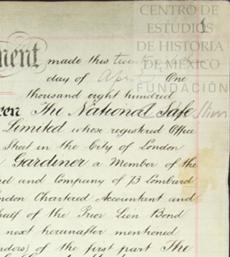 CENTRO DE
ESTUDIOS
DE HISTORIA
DE MÉXICO
FUNDACIÓN
1
ment made this twent
day of April One
thousand eight hundred
een The National Safe
Limited whose registered Office
Street in the City of London
Gardener a Member of the
and Company of 73 Lombard
ondon Chartered Accountant and
half of the Prior Lien Bond
next hereinafter mentioned
nders) of the first part The